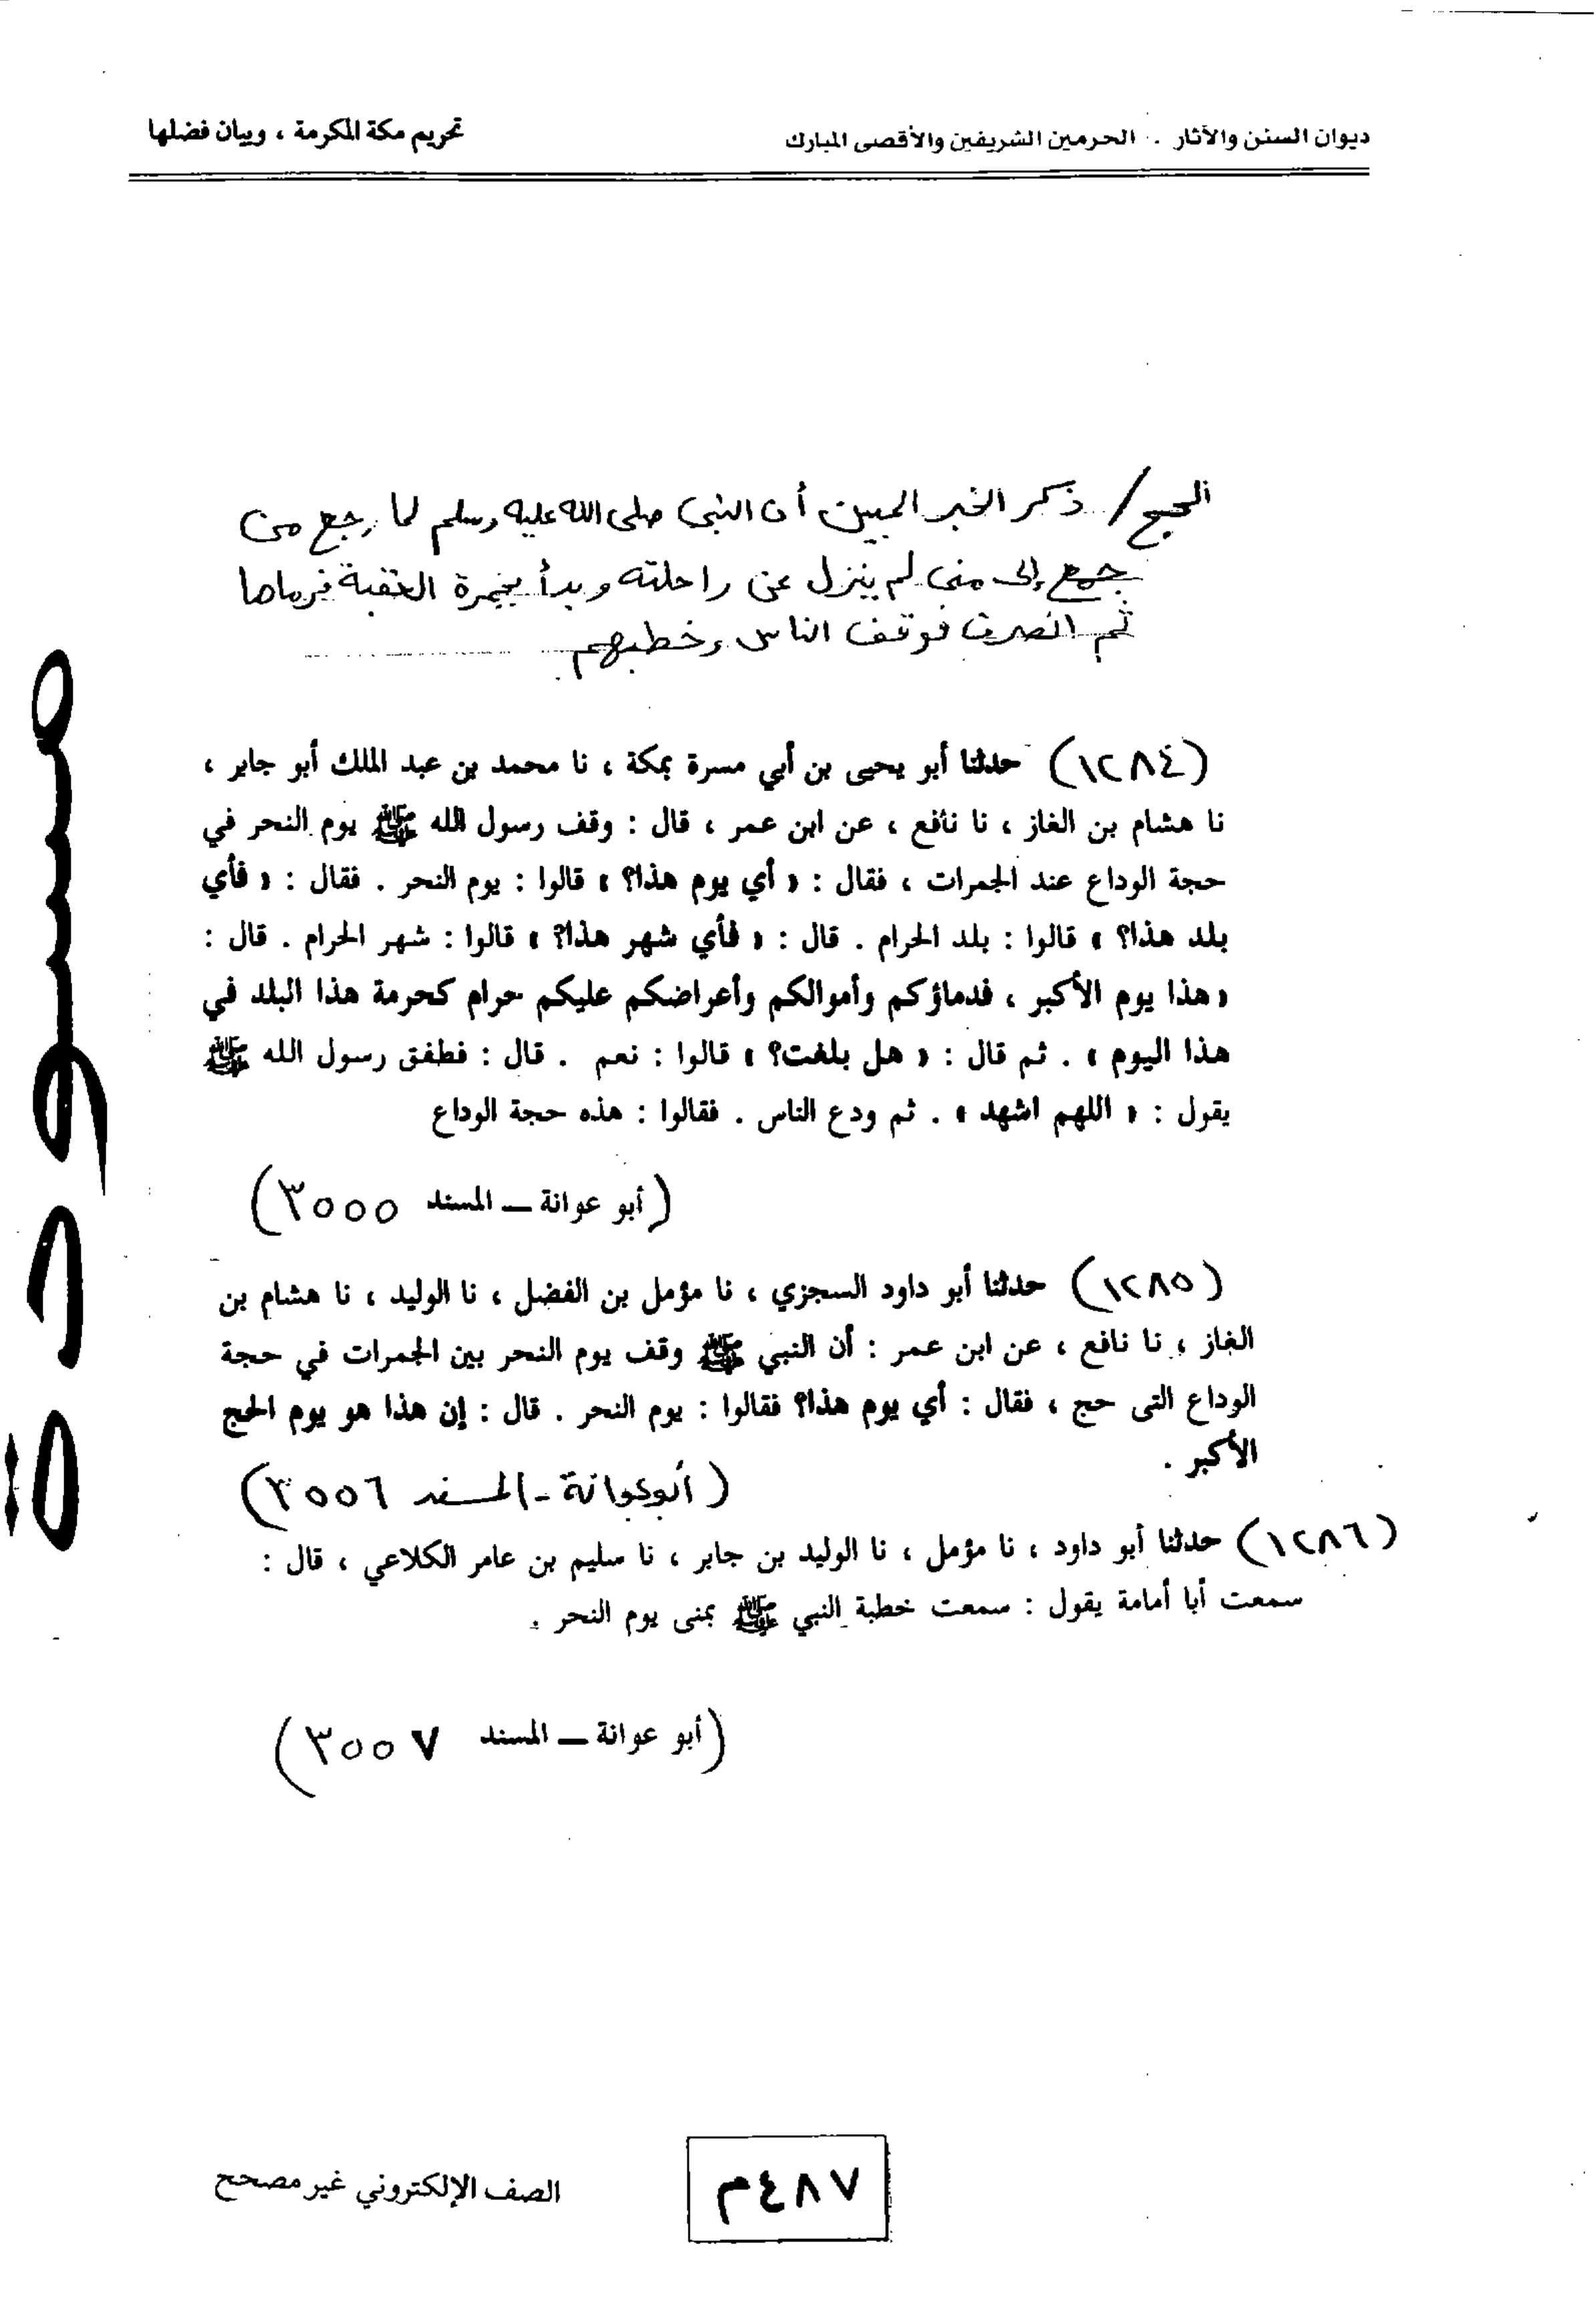 ديوان السنن والآثار . الحرمين الشريفين والأقصى المبارك
تحريم مكة المكرمة ، وبيان فضلها
الحج / ذكر الخبر المبين أن النبي صلى الله عليه وسلم لما رجع من
جمع إلى منى لم ينزل عن راحلته وبدأ بجمرة العقبة فرماها
ثم انصرف فوقف الناس وخطبهم
(١٢٨٤) حدثنا أبو يحيى بن أبي مسرة بمكة ، نا محمد بن عبد الملك أبو جابر ،
نا هشام بن الغاز ، نا نافع ، عن ابن عمر ، قال : وقف رسول الله ﷺ يوم النحر في
حجة الوداع عند الجمرات ، فقال : « أي يوم هذا؟ » قالوا : يوم النحر . فقال : « فأي
بلد هذا؟ » قالوا : بلد الحرام . قال : « فأي شهر هذا؟ » قالوا : شهر الحرام . قال :
« هذا يوم الأكبر ، فدماؤكم وأموالكم وأعراضكم عليكم حرام كحرمة هذا البلد في
هذا اليوم » . ثم قال : « هل بلغت؟ » قالوا : نعم . قال : فطفق رسول الله ﷺ
يقول : « اللهم اشهد » . ثم ودع الناس . فقالوا : هذه حجة الوداع
(أبو عوانة – المسند ٣٥٥٥)
(١٢٨٥) حدثنا أبو داود السجزي ، نا مؤمل بن الفضل ، نا الوليد ، نا هشام بن
الغاز ، نا نافع ، عن ابن عمر : أن النبي ﷺ وقف يوم النحر بين الجمرات في حجة
الوداع التى حج ، فقال : أي يوم هذا؟ فقالوا : يوم النحر . قال : إن هذا هو يوم الحج
الأكبر .
(أبو عوانة - المسند ٣٥٥٦)
(١٢٨٦) حدثنا أبو داود ، نا مؤمل ، نا الوليد بن جابر ، نا سليم بن عامر الكلاعي ، قال :
سمعت أبا أمامة يقول : سمعت خطبة النبي ﷺ بمنى يوم النحر .
(أبو عوانة – المسند ٣٥٥٧)
مسودة
٤٨٧م
الصف الإلكتروني غير مصحح